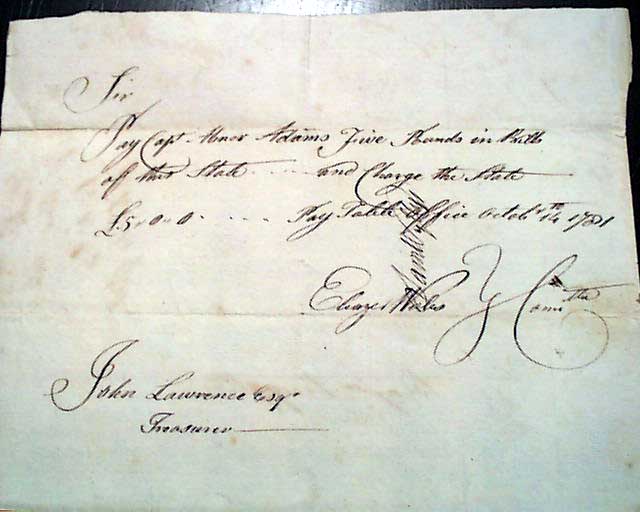 Sir
Pay Capt Abner Adams Five Pounds in Bills
off this State and Charge the State
£5,,0,,0 Pay Table Office Octobr 14th 1781
Eliazer Wales } Comtte
John Lawrence Esqr
Treasurer